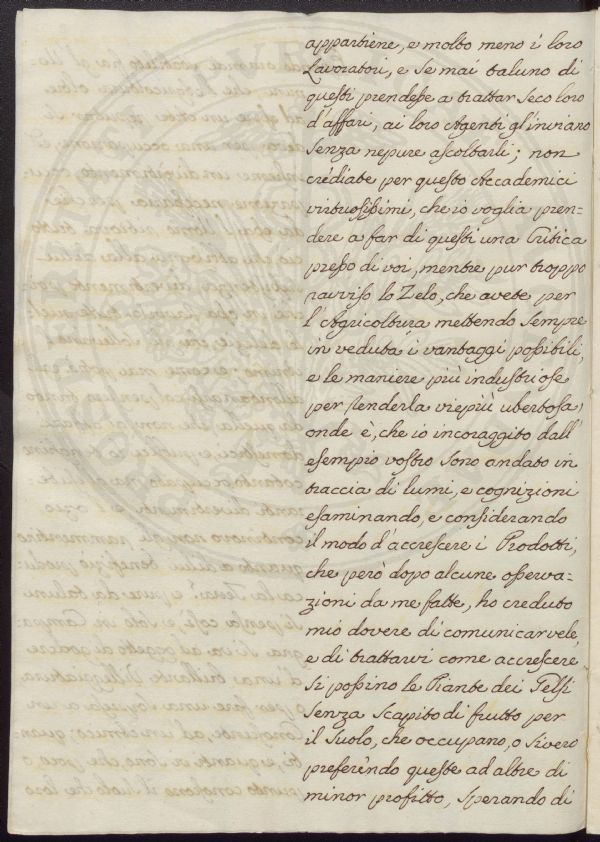 appartiene, e molto meno i loro
Lavoratori, e se mai taluno di
questi prendesse a trattar seco loro
d'affari, ai loro Agenti gl'inviano
senza nepure ascoltarli; non
crediate per questo Accademici
virtuosissimi, che io voglia pren=
dere a far di questi una Critica
presso di voi, mentre pur troppo
ravviso lo Zelo, che avete per
l'Agricoltura mettendo sempre
in veduta i vantaggi possibili,
e le maniere più industriose
per renderla viepiù ubertosa;
onde è, che io incoraggito dall'
esempio vostro sono andato in
traccia di lumi, e cognizioni
esaminando, e considerando
il modo d'accrescere i Prodotti,
che però dopo alcune osserva=
zioni da me fatte, ho creduto
mio dovere di comunicarvele,
e di trattarvi come accrescere
si possino le Piante dei Gelsi
senza scapito di frutto per
il suolo, che occupano, o sivero
preferendo queste ad altre di
minor profitto, sperando di